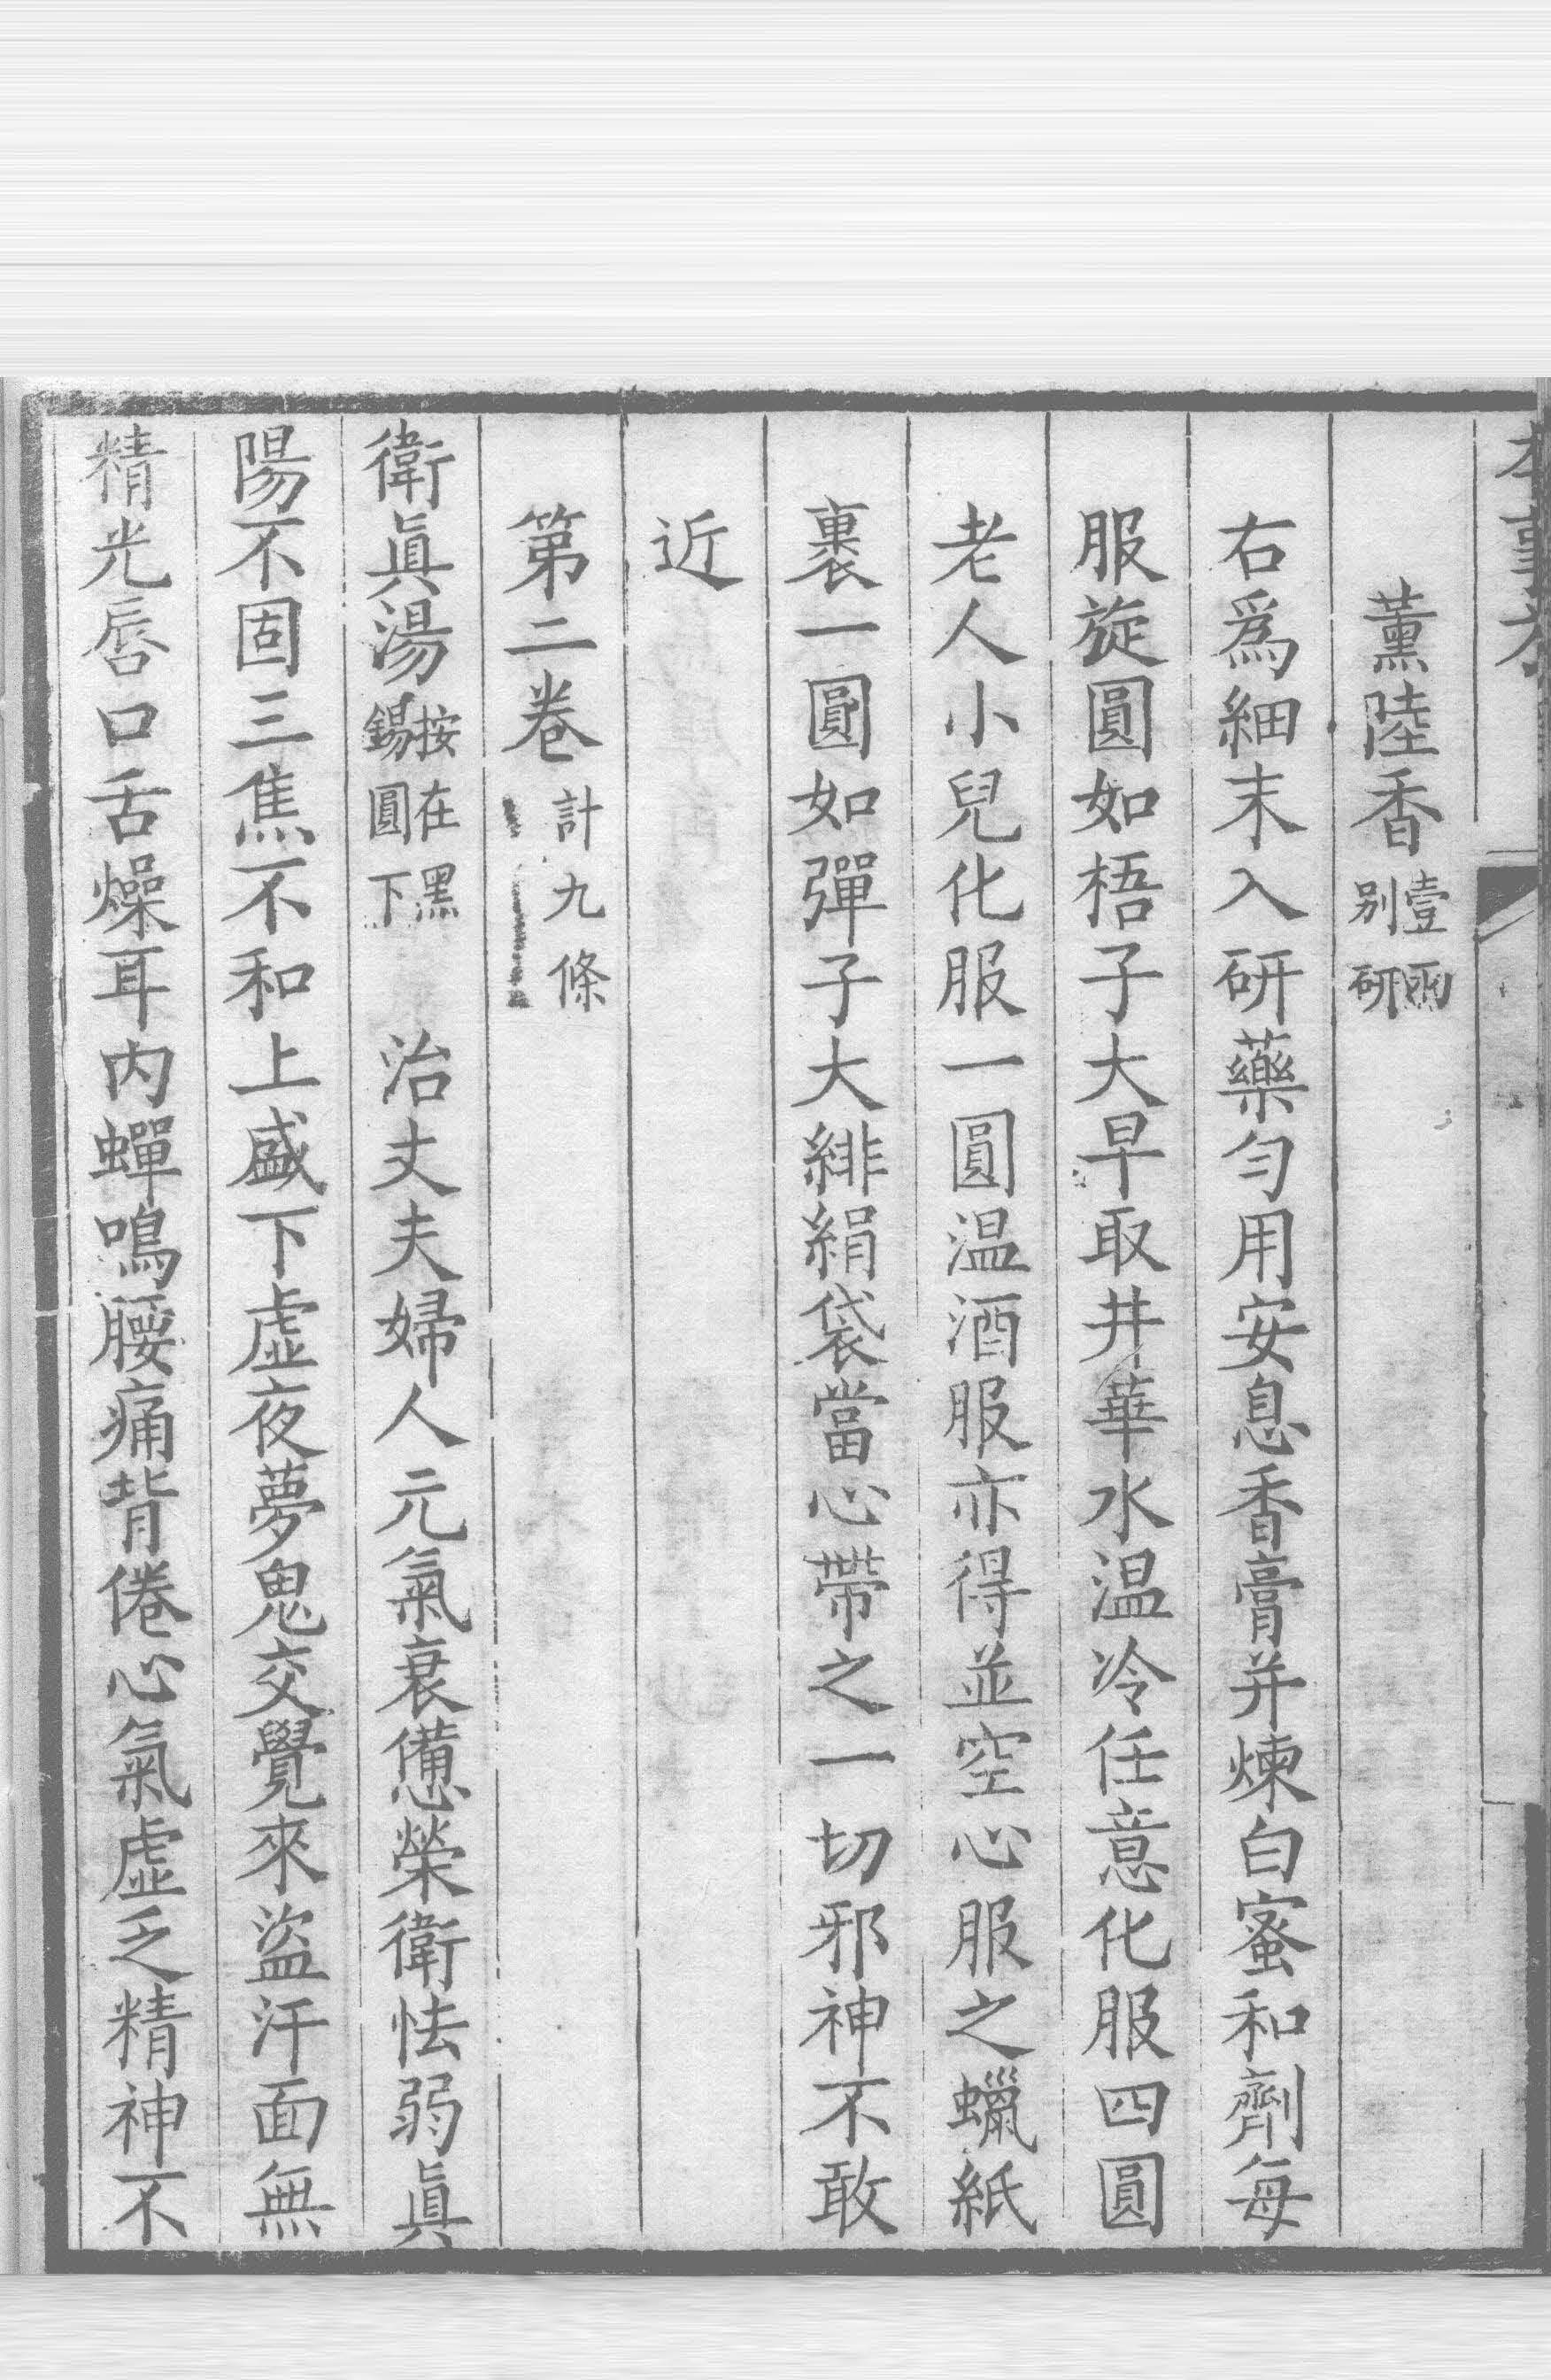 本事方
薰陸香壹兩別研
右爲細末入研藥勻用安息香膏并煉白蜜和劑每
服旋圓如梧子大早取井華水温冷任意化服四圓
老人小兒化服一圓温酒服亦得並空心服之蠟紙
裹一圓如彈子大緋絹袋當心帶之一切邪神不敢
近
第二卷計九條
衛眞湯按在黑錫圓下　治丈夫婦人元氣衰憊榮衛怯弱眞
陽不固三焦不和上盛下虛夜夢鬼交覺來盜汗面無
精光唇口舌燥耳内蟬鳴腰痛背倦心氣虛乏精神不